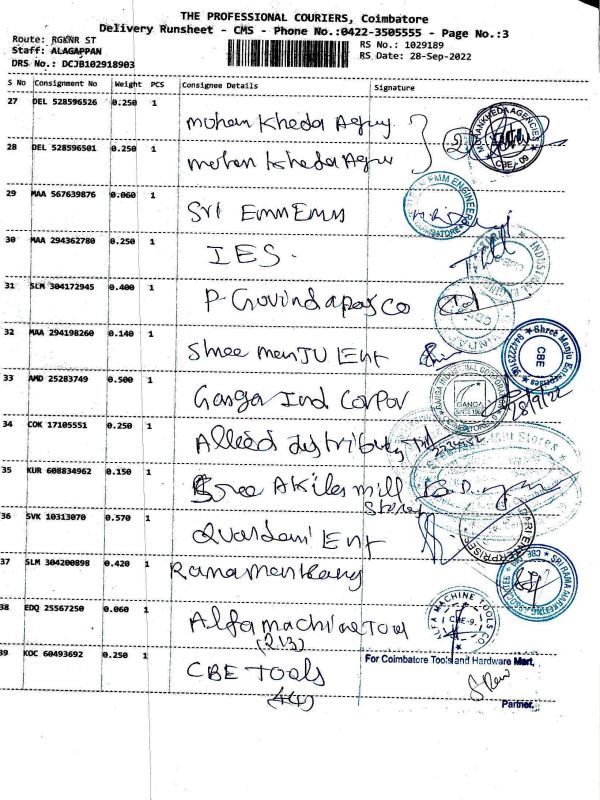 THE PROFESSIONAL COURIERS, Coimbatore
Delivery Runsheet - CMS - Phone No.:0422-3505555 - Page No.:3
Route: RGKNR ST
Staff: ALAGAPPAN
DRS No.: DCJB102918903
RS No.: 1029189
RS Date: 28-Sep-2022
S No Consignment No Weight PCS Consignee Details Signature
27 DEL 528596526 0.250 1 Mohan Kheda Agny
28 DEL 528596501 0.250 1 mohan Kheda Agn
MOHANKHEDA AGENCIES
CBE - 09
29 MAA 567639876 0.060 1 Sri EmmEmm
EMM ENGINEER
30 MAA 294362780 0.250 1 IES.
INDUSTRIAL
31 SLM 304172945 0.400 1 P. Govindapas co
32 MAA 294198260 0.140 1 Shree manJU Ent
Shree Manju Enterprises
CBE
33 AMD 25283749 0.500 1 Ganga Ind Corpor
GANGA INDUSTRIAL CORPORATION
GANGA
28/9/22
34 COK 17105551 0.250 1 Allied distributy
35 KUR 608834962 0.150 1 Sree Akiles mill
Stores
36 SVK 10313070 0.570 1 Ent
ENTERPRISES
37 SLM 304200898 0.420 1
SRI RAMA MARKETING
38 EDQ 25567250 0.060 1 Alfa machine Tool
(213)
ALFA MACHINE TOOLS CO.
CBE-9.
39 KOC 60493692 0.250 1 CBE Tools
(44)
For Coimbatore Tools and Hardware Mart,
Partner.